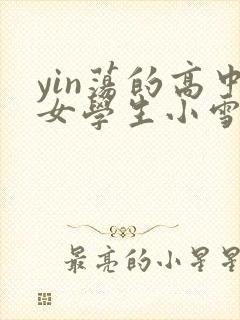 yin蕩的高中
女學生小雪
最亮的小星星